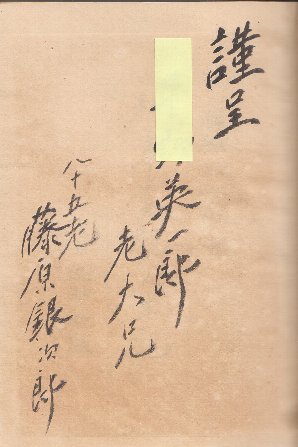 謹呈
英一郎
老大兄
八十五老
藤原銀次郎